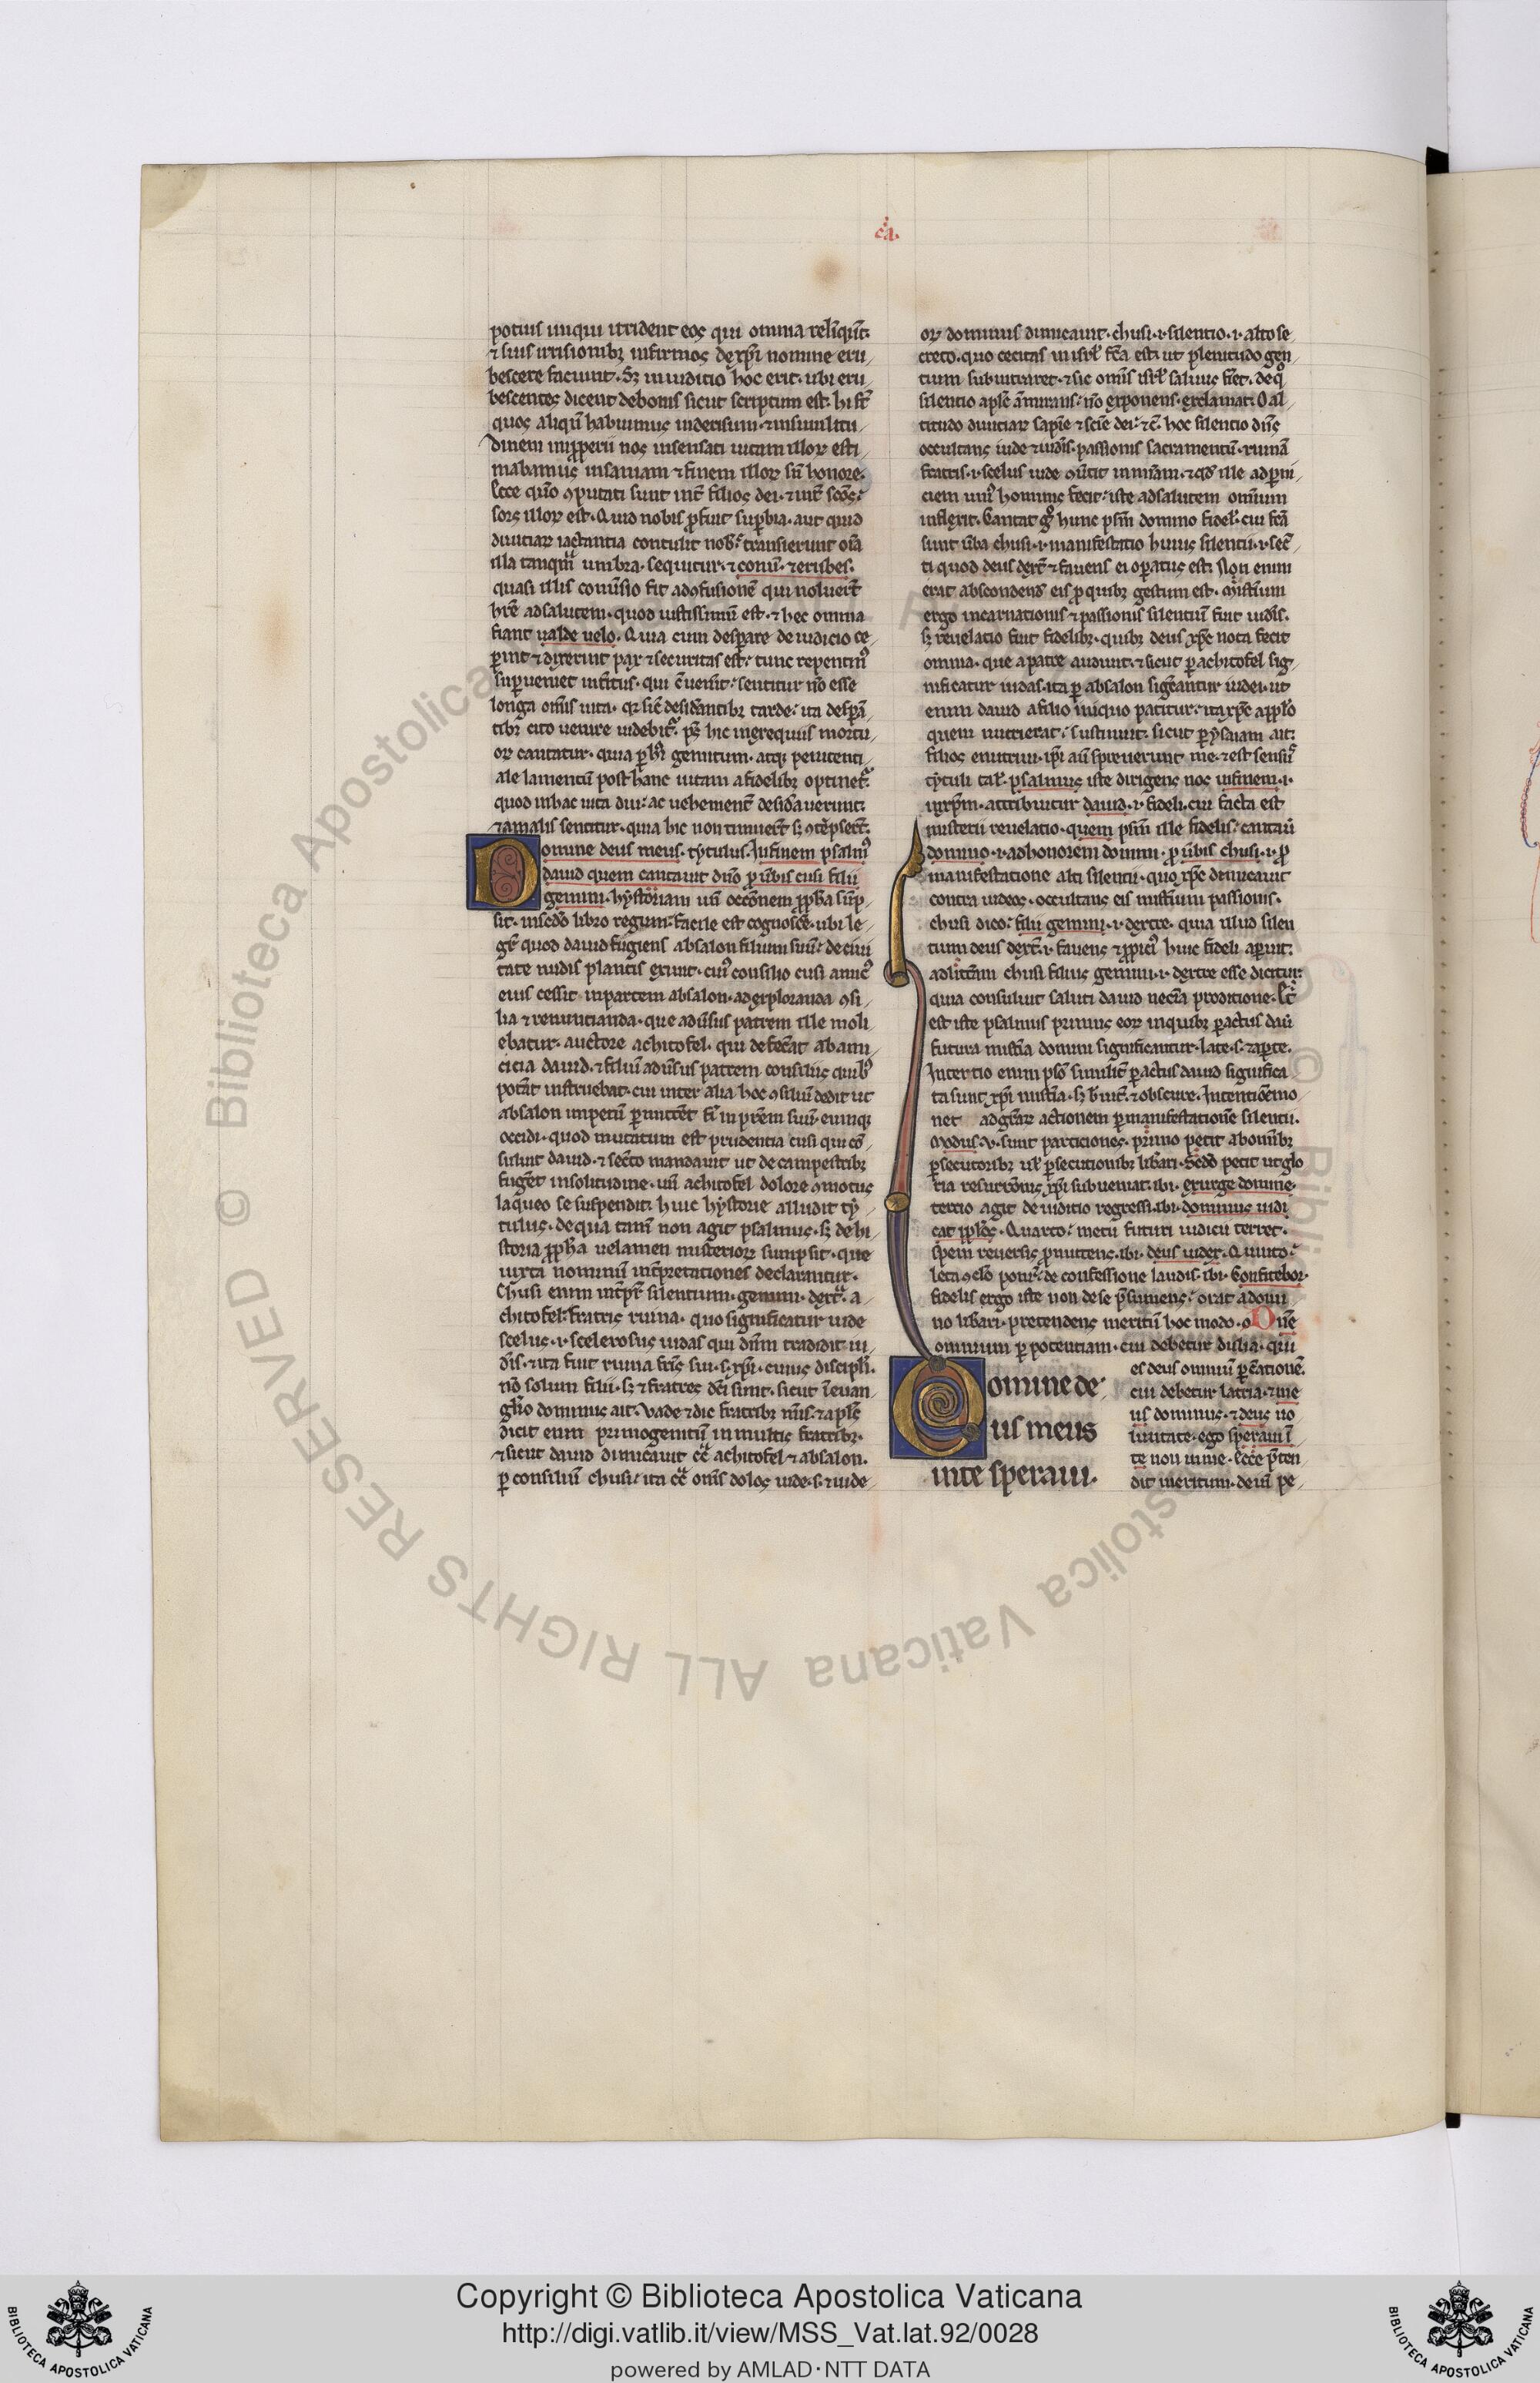 potius iniqui irrident eos qui omnia relinqunt.
⁊ suis irrisionibꝫ infirmos de xp̄i nomine eru
bescere faciunt. Sꝫ in iuditio hoc erit. ubi eru
bescentes dicent de bonis sicut scriptum est. hi sūt
quos aliqn̄ habuimus in derisum. ⁊ in similitu
dinem improperii nos insensati uitam illoꝝ esti
mabamus insaniam ⁊ finem illoꝝ sn̄ honore.
Ecce quō ꝯputati sunt int̄ filios dei. ⁊ int̄ scōs
sors illoꝝ est. Quid nobis profuit suꝑbia. aut quid
diuitiaꝝ iactantia contulit nob. transierunt oīa
illa tanquā umbra. sequitur. ⁊ conuer. ⁊ erubes.
quasi illis conuersio fit ad ꝯfusionē qui noluert̄
hr̄e ad salutem. quod iustissimū est. ⁊ hec omnia
fiant ualde uelo. Quia cum desperare de iudicio ce
perint ⁊ dixerint pax ⁊ securitas est. tunc repentin⁹
suꝑueniet interitus. qui c̄ uenit. sentitur nō esse
longa om̄is uita. qꝛ sic̄ desiderantibꝫ tarde. ita despān
tibꝫ cito uenire uidebit᷑. ps hic in exequiis mortu
oꝝ cantatur. quia per huius gemitum. atqꝫ penitenti
ale lamentū post hanc uitam a fidelibꝫ optinet᷑.
quod in hac uita diu. ac uehement̄ desiderauerunt.
⁊ a malis sentitur. quia hic non timuert̄ sꝫ ꝯtēpsert̄.
Domine deus meus. tytulus. In finem psalm⁹
dauid quem cantauit dn̄o pro uerbis cusi filii
gemini. hystoriam un̄ occōnem ꝓpha sūp
sit. in secd̄o libro regum. facile est cognoscere. ubi le
git̄ quod dauid fugiens absalon filium suū. de ciui
tate nudis plantis exiuit. cui⁹ consilio cusi amic⁹
eius cessit in partem absalon. ad exploranda ꝯsi
lia ⁊ renuncianda. que aduersus patrem ille moli
ebatur. auctore achitofel. qui defec̄at ab ami
cicia dauid. ⁊ filiū aduersus patrem consiliis quibꝫ
poterat instruebat. cui inter alia hoc ꝯsiliū dedit ut
absalon imperiū permitteret fi in pr̄em suū. eumqꝫ
occidi. quod mutatum est prudentia cusi qui cō
suluit dauid. ⁊ sec̄to mandauit ut de campestribꝫ
fugeret in solitudine. un̄ achitofel dolore ꝯmotus
laqueo se suspendit. huic hystorie alludit ty
tulus. de qua tam̄ non agit psalmus. sꝫ de hi
storia ꝓpha uelamen misterioꝝ sumpsit. que
iuxta nominū int̄pretationes declarantur.
Chusi enim int̄pr̄ silentium. gemini. dextr̄a. a
chitofel. fratris ruina. quo significatur iude
scelus. ⁊. scelerosus iudas qui dn̄m tradidit iu
dīs. ⁊ ita fuit ruina fr̄is sui. s. xp̄i. cuius discipli.
nō solum filii. sꝫ ⁊ fratres dc̄i sunt. sicut ī euan
gl̄io dominus ait. Vade ⁊ dic fratribꝫ meis. ⁊ apl̄s
dicit eum primogenitū in multis fratribꝫ.
⁊ sicut dauid dimicauit cc̄ achitofel ⁊ absalon.
per consiliū chusi. ita cc̄ om̄s dolos iude. s. ⁊ iude
c̄a.
oꝝ dominus dimicauit. chusi. i. silentio. i. alto se
creto. quo cecitas in isrl̄ fc̄a est. ut plenitudo gen
tium subintraret. ⁊ sic omīs isrl̄ saluus fieret. de quo
silentio apl̄s ammirans. nō exponens. exclamat. O al
titudo diuitiaꝝ sapīe ⁊ scīe dei. ⁊c̄. hoc silentio dn̄s
occultans iude ⁊ iudeis. passionis sacramentū. ruinā
fratris. i. scelus iude ꝯuertit in nr̄am. ⁊ qd̄ ille ad perni
ciem uni⁹ hominis fecit. iste ad salutem omnium
inflexit. Cantat gͦ hunc psm̄ domino fidel̄. cui fc̄a
sunt uerba chusi. i. manifestatio huius silentii. i. sec̄
ti quod deus dexter ⁊ fauens ei operatus est. Non enim
erat abscondens eis pro quibꝫ gestum est. Misterium
ergo incarnationis ⁊ passionis silentiū fuit iudeis.
sꝫ reuelatio fuit fidelibꝫ. quibꝫ deus xp̄c nota fecit
omnia. que a patre audiuit. ⁊ sicut per achitofel sig
nificatur iudas. ita per absalon significantur iudei. ut
enim dauid a filio iniquo patitur. ita xp̄c a populo
quem nutrierat. sustinuit. sicut per ysaiam ait.
filios enutriui. ip̄i aut̄ spreuerunt me. ⁊ est sensus
tytuli talis. psalmus iste dirigens nos in finem. i.
in xp̄m. attribuitur dauid. i. fideli. cui facta est
misterii reuelatio. quem psm̄ ille fidelis. cantauit
domino. i. ad honorem domini. pro uerbis chusi. i. pro
manifestatione alti silentii. quo xp̄c dimicauit
contra iudeos. occultans eis misterium passionis.
chusi dico. filii gemini. i. dextre. quia illud silen
tium deus dexter. i. fauens ⁊ ꝓpici⁹ huic fideli aperuit.
ad litteram chusi filius gemini. i. dextre esse dicitur.
quia consuluit saluti dauid necīa proditione. Et
est iste psalmus primus eoꝝ in quibꝫ per actus dauid
futura misteria domini significantur. late. s. ⁊ aperte.
In tertio enim psō similit̄ per actus dauid significa
ta sunt xp̄i misteria. sꝫ breuiter. ⁊ obscure. Intentio mo
net ad gr̄aꝝ actionem per manifestationē silentii.
Modus. v. sunt particiones. primo petit ab omnibꝫ
persecutoribꝫ ul̄ persecutionibꝫ liberari. Secd̄o petit ut glo
ria resurrectionis xp̄i subueniat. ibi. exurge domine.
tertio agit de iuditio regressi. ibi. dominus iudi
cat populos. Quarto. metu futuri iudicii terret.
spem reuersis promittens. ibi. deus iudex. Quinto.
leta ꝯclō ponit. de confessione laudis. ibi. Confitebor.
fidelis ergo iste non de se presumens. orat a domi
no liberari. pretendens meritū hoc modo. o Dn̄e
omnium per potentiam. cui debetur dulia. qui
es deus omniū per creationē.
cui debetur latria. ⁊ me
us dominus. ⁊ deus uo
luntate. ego speraui ī
te non in me. Ecce preten
dit meritum. dein̄ pe
Domine de
us meus
in te speraui.
Biblioteca Apostolica Vaticana ALL RIGHTS RESERVED ©
Copyright © Biblioteca Apostolica Vaticana
http://digi.vatlib.it/view/MSS_Vat.lat.92/0028
powered by AMLAD·NTT DATA
BIBLIOTECA APOSTOLICA VATICANA
BIBLIOTECA APOSTOLICA VATICANA